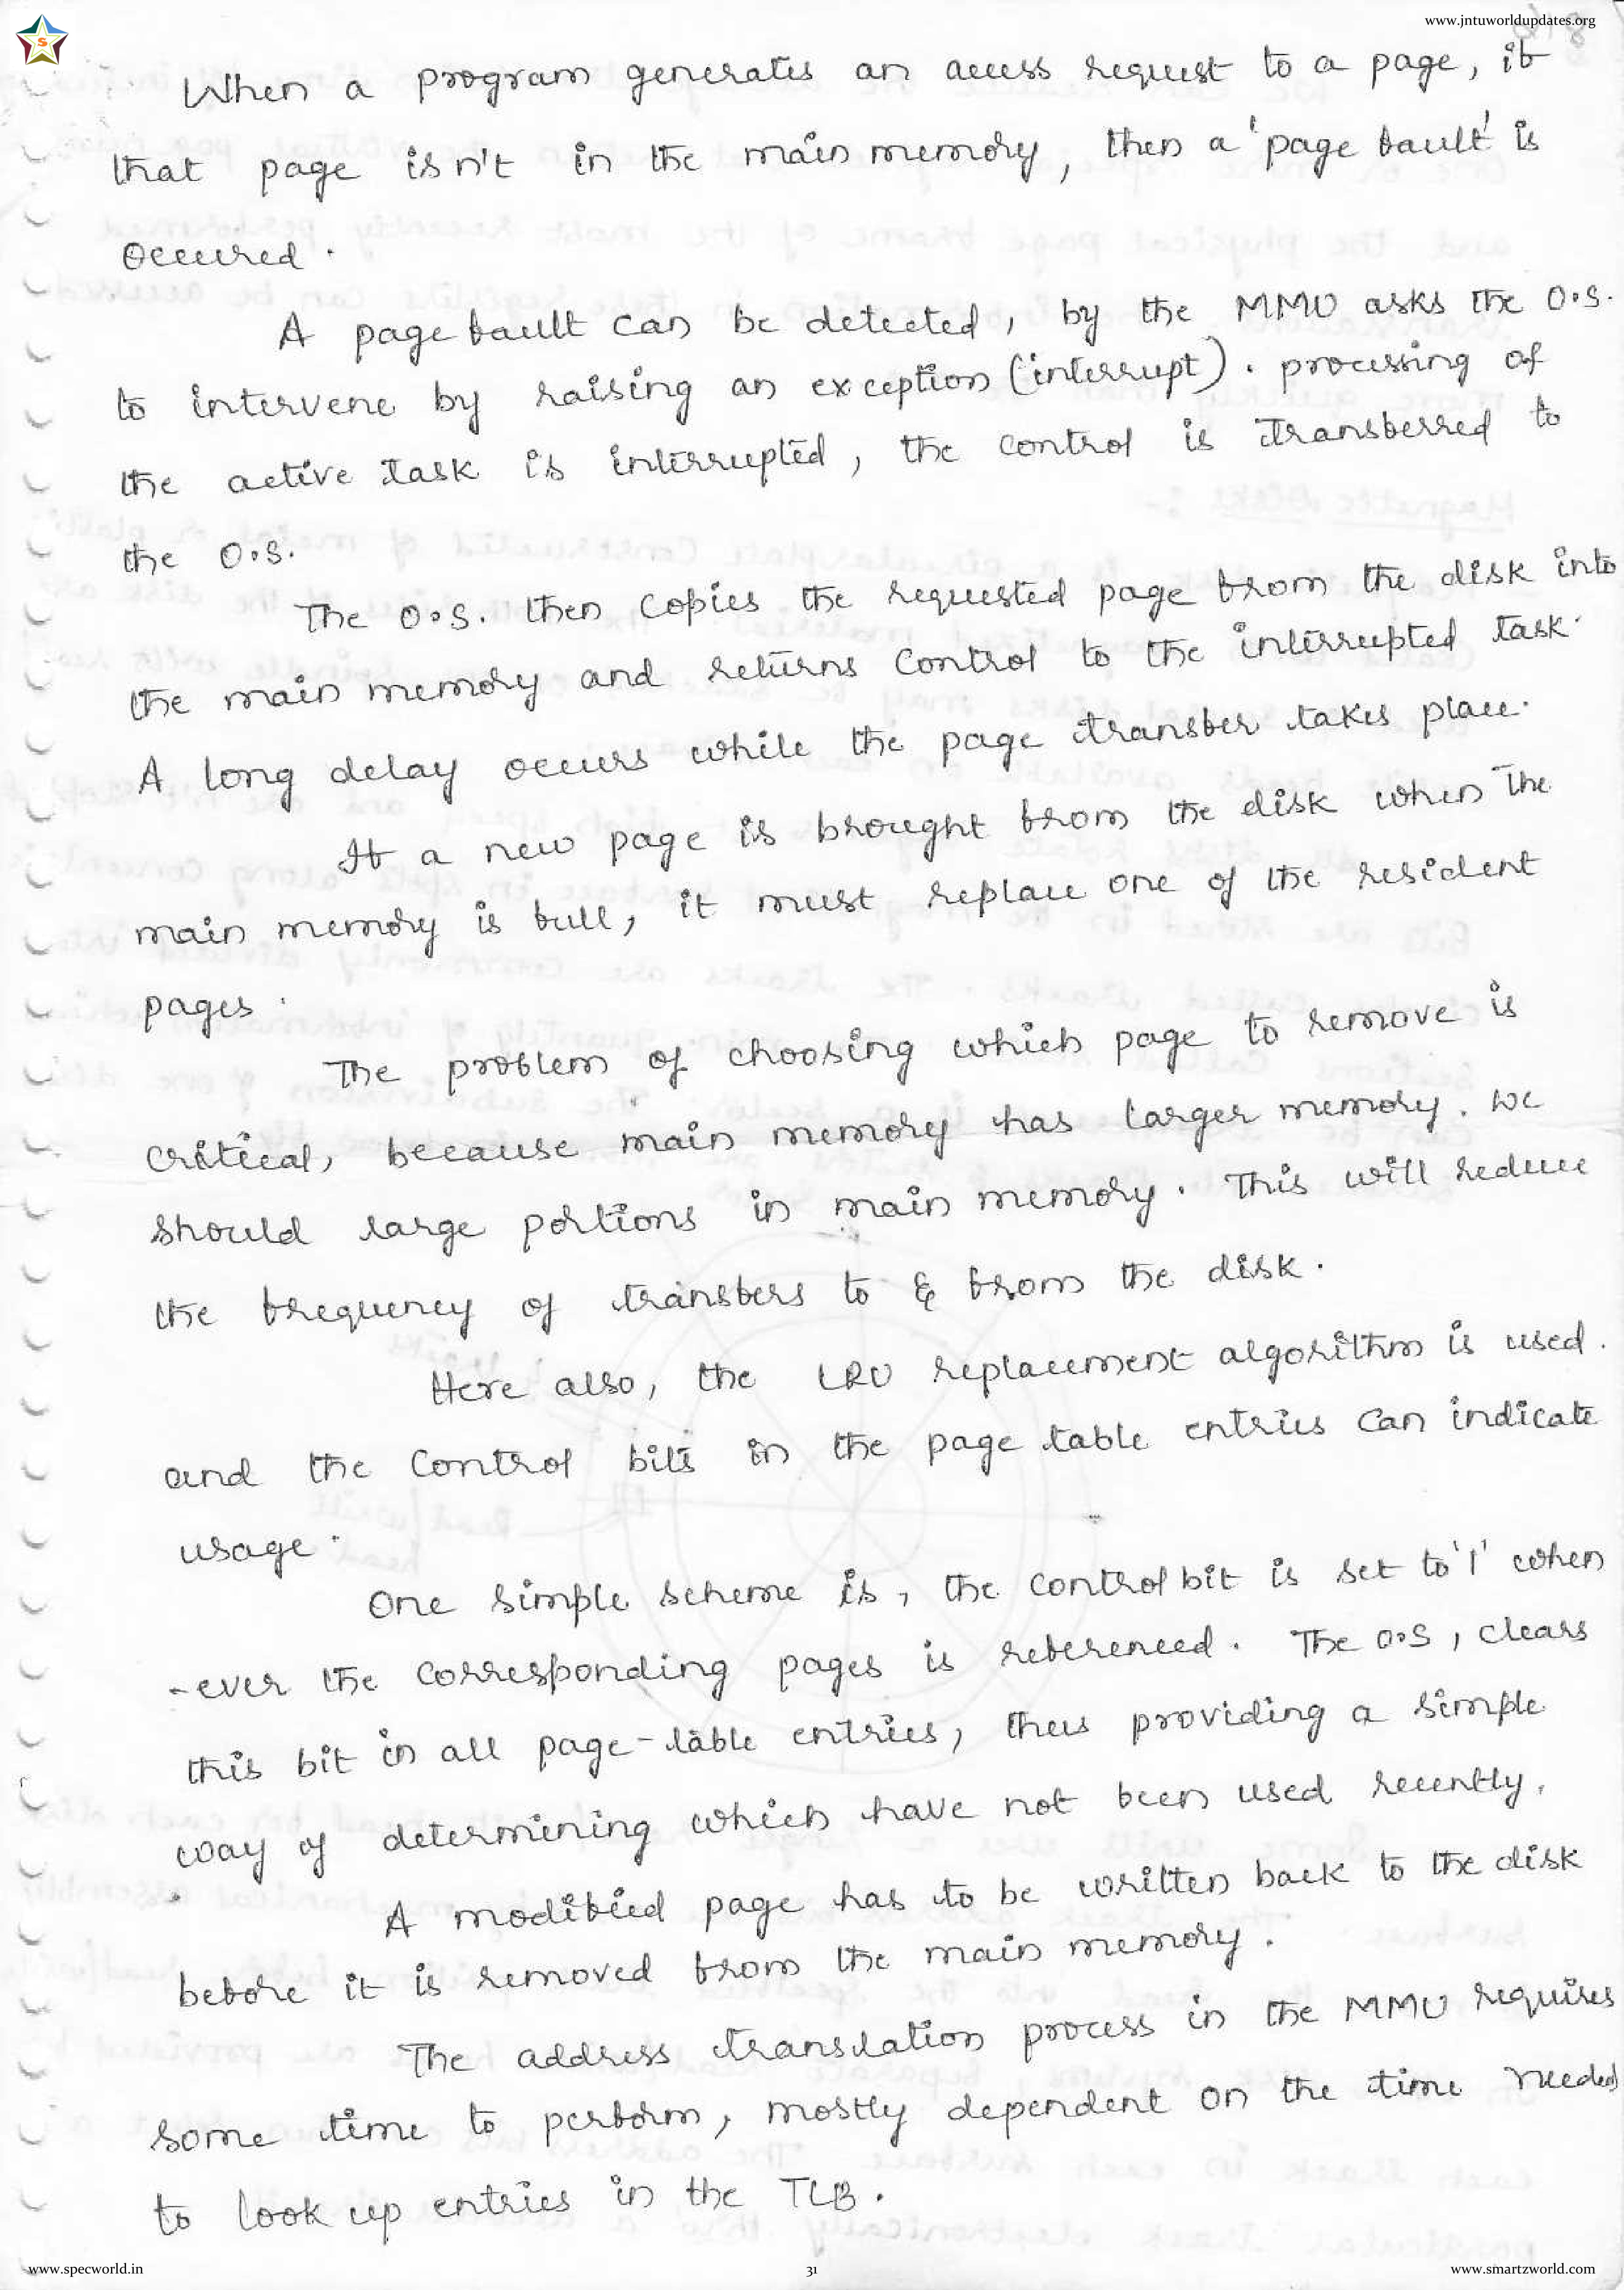 www.jntuworldupdates.org
S
When a program generates an access request to a page, if
that page isn't in the main memory, then a 'page fault' is
occured.
A page fault can be detected, by the MMU asks the O.S.
to intervene by raising an exception (interrupt). processing of
the active task is interrupted, the control is transferred to
the O.S.
The O.S. then copies the requested page from the disk into
the main memory and returns control to the interrupted task.
A long delay occurs while the page transfer takes place.
If a new page is brought from the disk when the
main memory is full, it must replace one of the resident
pages.
The problem of choosing which page to remove is
critical, because main memory has larger memory. we
should large portions in main memory. This will reduce
the frequency of transfers to & from the disk.
Here also, the LRU replacement algorithm is used.
and the control bits in the page table entries can indicate
usage.
One simple scheme is, the control bit is set to '1' when
-ever the corresponding pages is referenced. The O.S, clears
this bit in all page-table entries, thus providing a simple
way of determining which have not been used recently.
A modified page has to be written back to the disk
before it is removed from the main memory.
The address translation process in the MMU requires
some time to perform, mostly dependent on the time needed
to look up entries in the TLB.
www.specworld.in
31
www.smartzworld.com